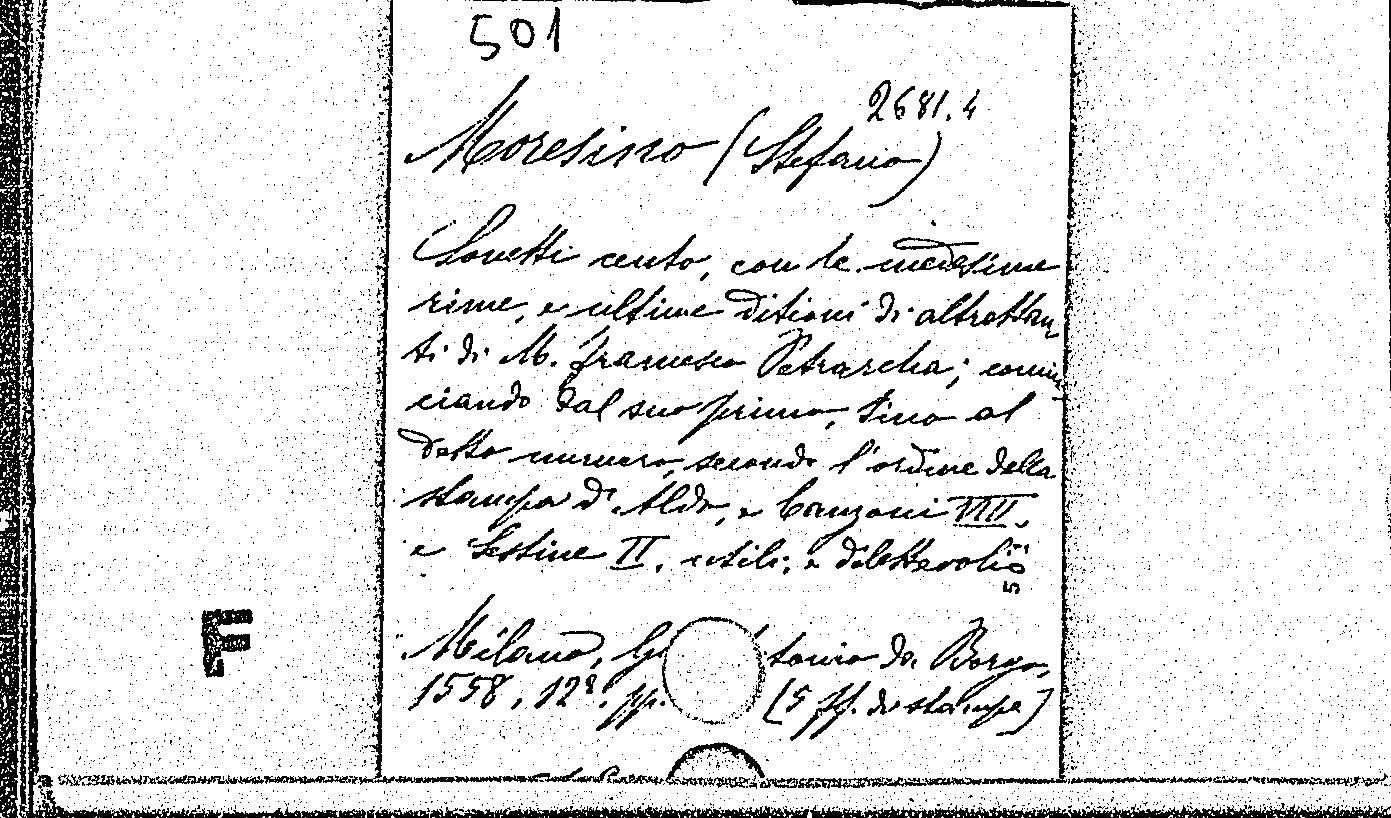 501
2681.4
Moresino (Stefano)
Sonetti cento, con le medesime
rime, e ultime ditioni di altrottan
ti di M. Francesco Petrarcha; comin
ciando dal suo primo, sino al
detto numero, secondo l'ordine della
stampa d'Aldo, e Canzoni VIII,
e Sestine II. utili, e dilettevoli
5
F
Milano, G tonio da Borgo,
1558, 12º. pp. [5 ff. di stampa]